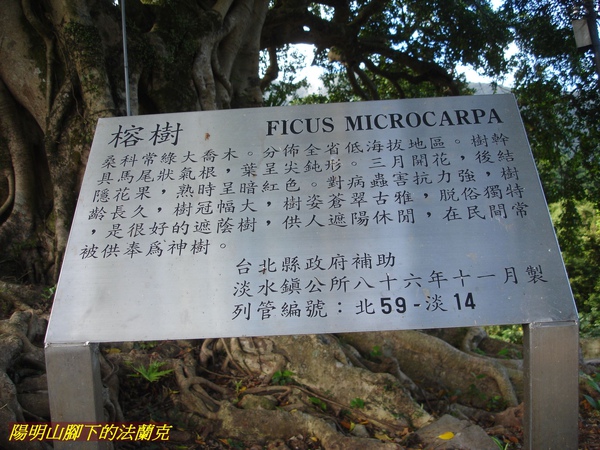 榕樹 FICUS MICROCARPA
桑科常綠大喬木。分佈全省低海拔地區。樹幹
具馬尾狀氣根，葉呈尖鈍形。三月開花，後結
隱花果，熟時呈暗紅色。對病蟲害抗力強，樹
齡長久，樹冠幅大，樹姿蒼翠古雅，脫俗獨特
，是很好的遮蔭樹，供人遮陽休閒，在民間常
被供奉爲神樹。
台北縣政府補助
淡水鎮公所八十六年十一月製
列管編號：北59-淡14
陽明山腳下的法蘭克